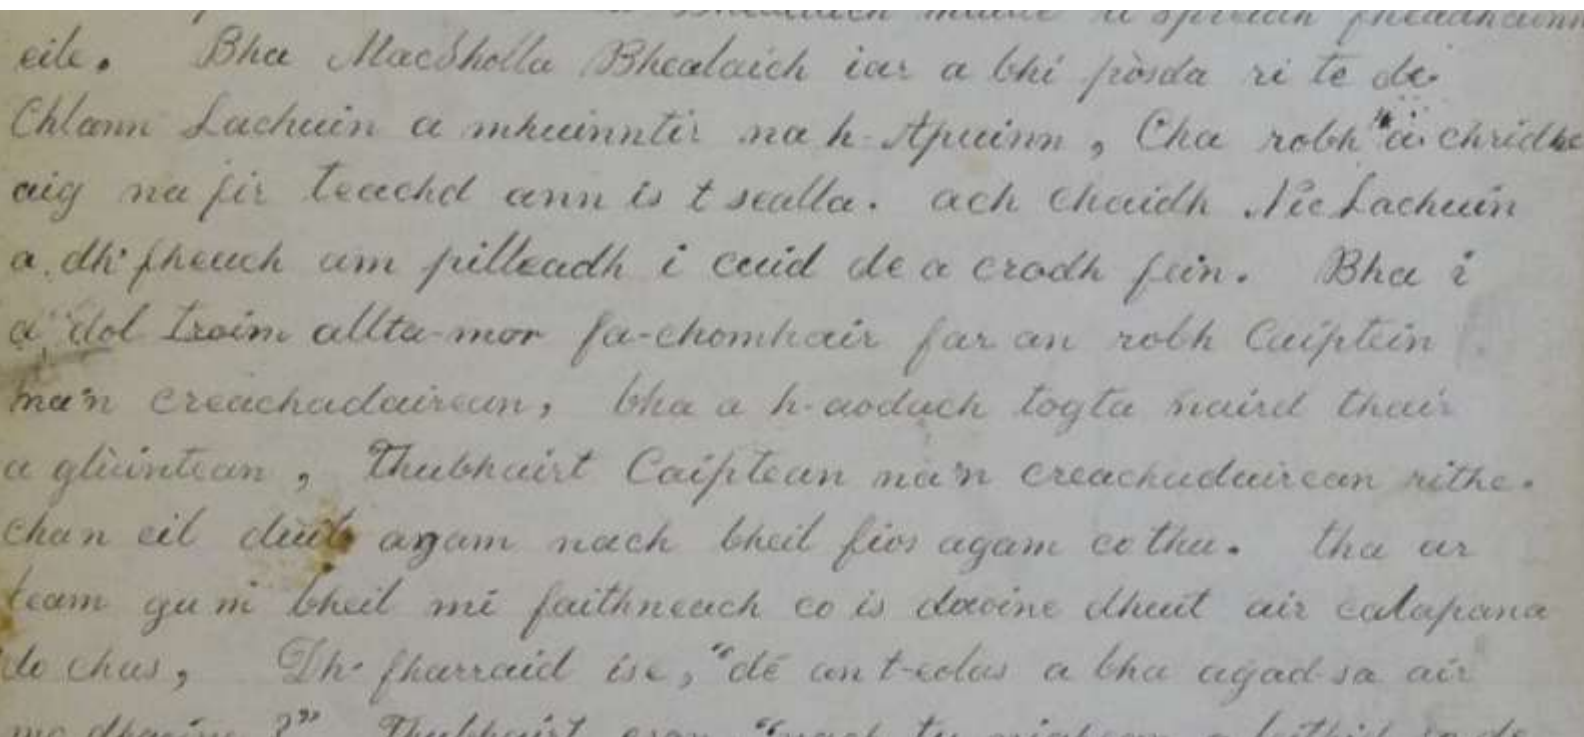 eile. Bha MacDholla Bhealaich iar a bhi pòsda ri te de
Chlann Lachuin a mhuinntir na h-Apuinn, Cha robh a chridhe
aig na fir teachd ann is t sealla. ach chaidh Nic Lachuin
a dh' fheuch am pilleadh i cuid de a crodh fein. Bha i
a dol troim allta-mor fa-chomhair far an robh Caiptein
na'n creachadairean, bha a h-aodach togta naird thair
a glùintean, Thubhairt Caiptean na'n creachadairean rithe.
chan eil agam nach bheil fios agam co thu. tha ar
team gu m bheil mi faithneach co is daoine dhuit air calapana
do chas, Dh' fharraid ise, "dé an t-eolas a bha agad-sa air
mo dhaoine?" Thubhairt esan "nach tu